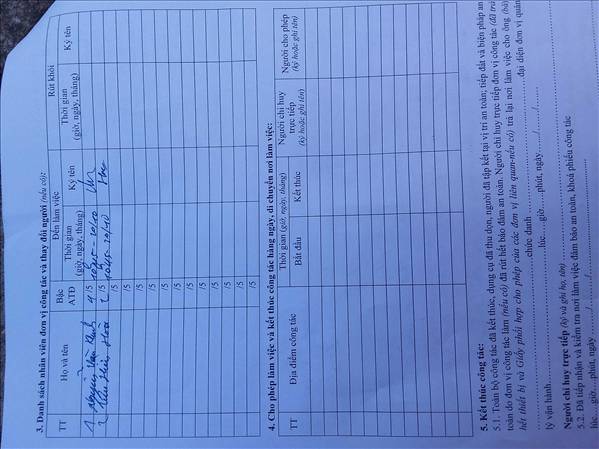 3. Danh sách nhân viên đơn vị công tác và thay đổi người (nếu có):
TT
Họ và tên
Bậc ATĐ
Đến làm việc
Rút khỏi
Thời gian (giờ, ngày, tháng)
Ký tên
Thời gian (giờ, ngày, tháng)
Ký tên
1 Nguyễn Văn 4/5
2 /5
/5
/5
/5
/5
/5
/5
/5
/5
4. Cho phép làm việc và kết thúc công tác hàng ngày, di chuyển nơi làm việc:
TT
Địa điểm công tác
Thời gian (giờ, ngày, tháng)
Bắt đầu
Kết thúc
Người chỉ huy trực tiếp (ký hoặc ghi tên)
Người cho phép (ký hoặc ghi tên)
5. Kết thúc công tác:
5.1. Toàn bộ công tác đã kết thúc, dụng cụ đã thu dọn, người đã tập kết tại vị trí an toàn; tiếp đất và biện pháp an
toàn do đơn vị công tác làm (nếu có) đã rút hết bảo đảm an toàn. Người chỉ huy trực tiếp đơn vị công tác (đã trả
hết thiết bị và Giấy phối hợp cho phép của các đơn vị liên quan-nếu có) trả lại nơi làm việc cho ông (bà)
.....chức danh ..... đại diện đơn vị quản
lý vận hành.....lúc....giờ....phút, ngày...../...../.....
Người chỉ huy trực tiếp (ký và ghi họ, tên) .....
5.2. Đã tiếp nhận và kiểm tra nơi làm việc đảm bảo an toàn, khoá phiếu công tác
lúc....giờ....phút, ngày...../...../.....